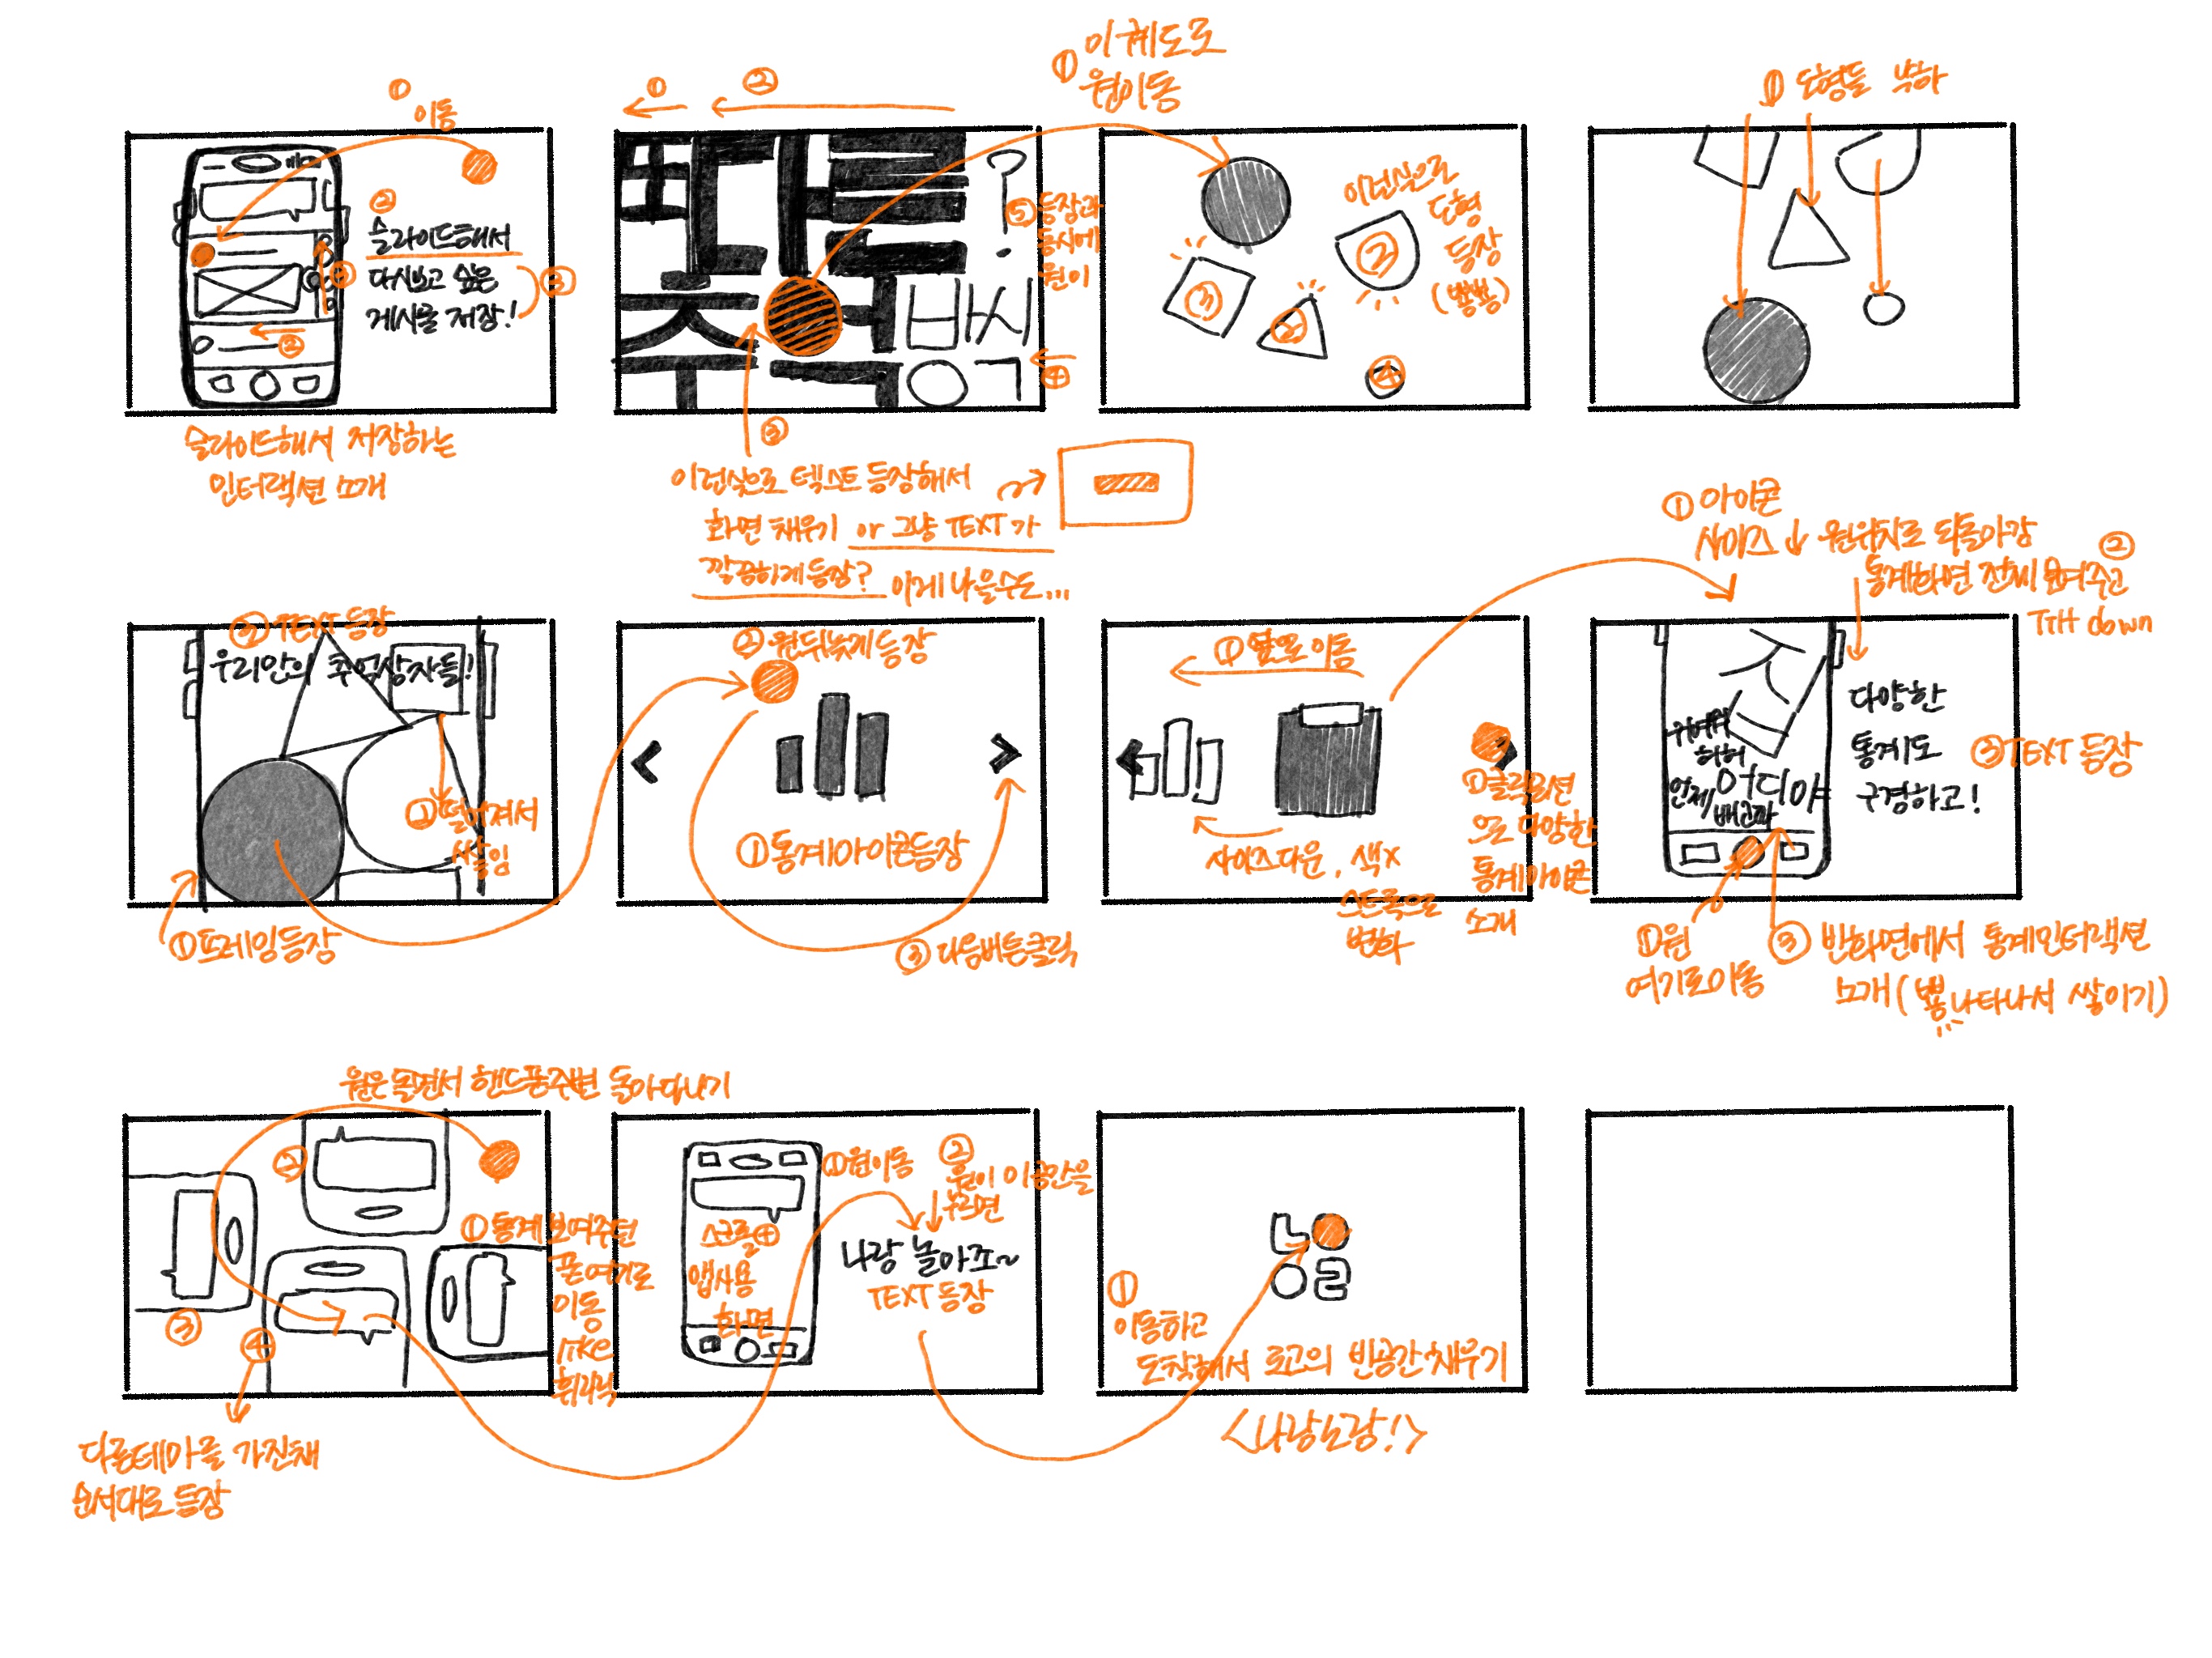 ① 이동
②
슬라이드해서
다시보고 싶은
게시물 저장!
③
③
②
슬라이드해서 저장하는
인터랙션 소개
① ②
또다른
추억 방식
?
⑤ 등장과
동시에
원이
④
③
이런식으로 텍스트 등장해서
화면 채우기 or 그냥 TEXT가
깔끔하게 등장? 이게 나을수도...
① 이궤도로
원이동
이런식으로
도형
등장
(뿅뿅)
②
③
②
④
① 도형들 낙하
③ TEXT 등장
우리만의 추억상자들!
② 떨어져서
쌓임
① 프레임등장
② 원뒤늦게등장
① 통계아이콘등장
③ 다음버튼클릭
① 옆으로 이동
사이즈다운, 색X
스트록으로
변화
① 클릭액션
으로 다양한
통계아이콘
소개
① 아이콘
사이즈↓ 원위치로 되돌아감
②
통계화면 전체 보여주고
Tilt down
귀여워
하하
언제 어디야
배고파
다양한
통계도
구경하고!
③ TEXT 등장
① 원
여기로이동
③ 반화면에서 통계인터랙션
소개(뿅 나타나서 쌓이기)
원은 돌면서 핸드폰주변 돌아다니기
②
③
④
① 통계 보여주던
폰 여기로
이동
like
휘리릭
다른테마를 가진채
순서대로 등장
① 원이동
②
원이 이공간을
누르면
스크롤
앱사용
화면
나랑 놀아죠~
TEXT 등장
①
이동하고
도착해서 로고의 빈공간 채우기
<나랑노랑!>